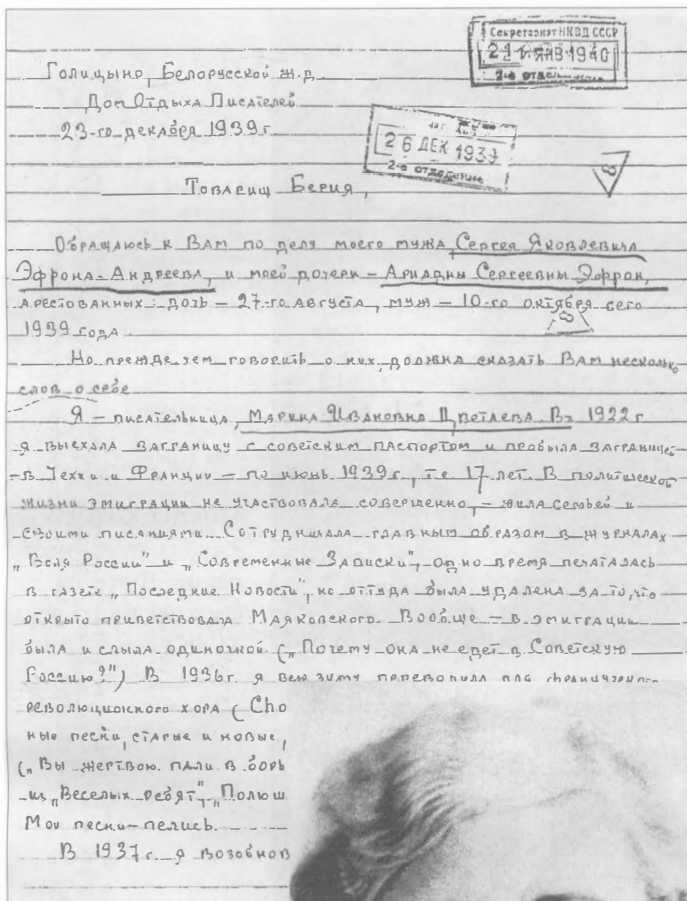 Секретариат НКВД СССР
21 ЯНВ 1940
2-е отделение
Голицыно, Белорусской ж.д
Дом Отдыха Писателей
23-го декабря 1939 г
26 ДЕК 1939
2-ое отделение
Товарищ Берия,
Обращаюсь к Вам по делу моего мужа, Сергея Яковлевича
Эфрона-Андреева, и моей дочери – Ариадны Сергеевны Эфрон,
арестованных: дочь – 27-го августа, муж – 10-го октября сего
1939 года
Но прежде чем говорить о них, должна сказать Вам несколько
слов о себе
Я – писательница, Марина Ивановна Цветаева. Въ 1922 г
я выехала заграницу с советским паспортом и пробыла заграницей
– в Чехии и Франции – по июнь 1939 г, т.е 17 лет. В политической
жизни эмиграции не участвовала совершенно, – жила семьей и
своими писаниями. Сотрудничала главным образом в журналах
„Воля России" и „Современные Записки", одно время печаталась
в газете „Последние Новости", но оттуда была удалена за то, что
открыто приветствовала Маяковского. Вообще – в эмиграции
была и слыла одиночкой („Почему она не едет в Советскую
Россию?") В 1936 г. я всю зиму переводила для французского
революционного хора (Cho
ные песни, старые и новые,
(„Вы жертвою пали в борь
из „Веселых ребят", „Полюш
Мои песни – пелись.
В 1937 г. я возобнов